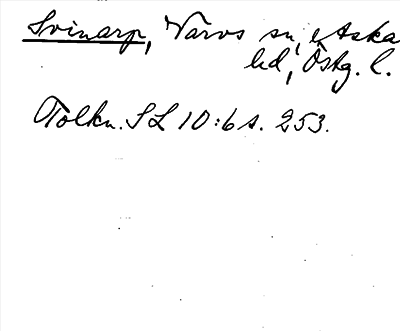 Svinarp, Värvs sn, Aska
hd, Östg. l.
Tolkn. SL 10:6 s. 253.